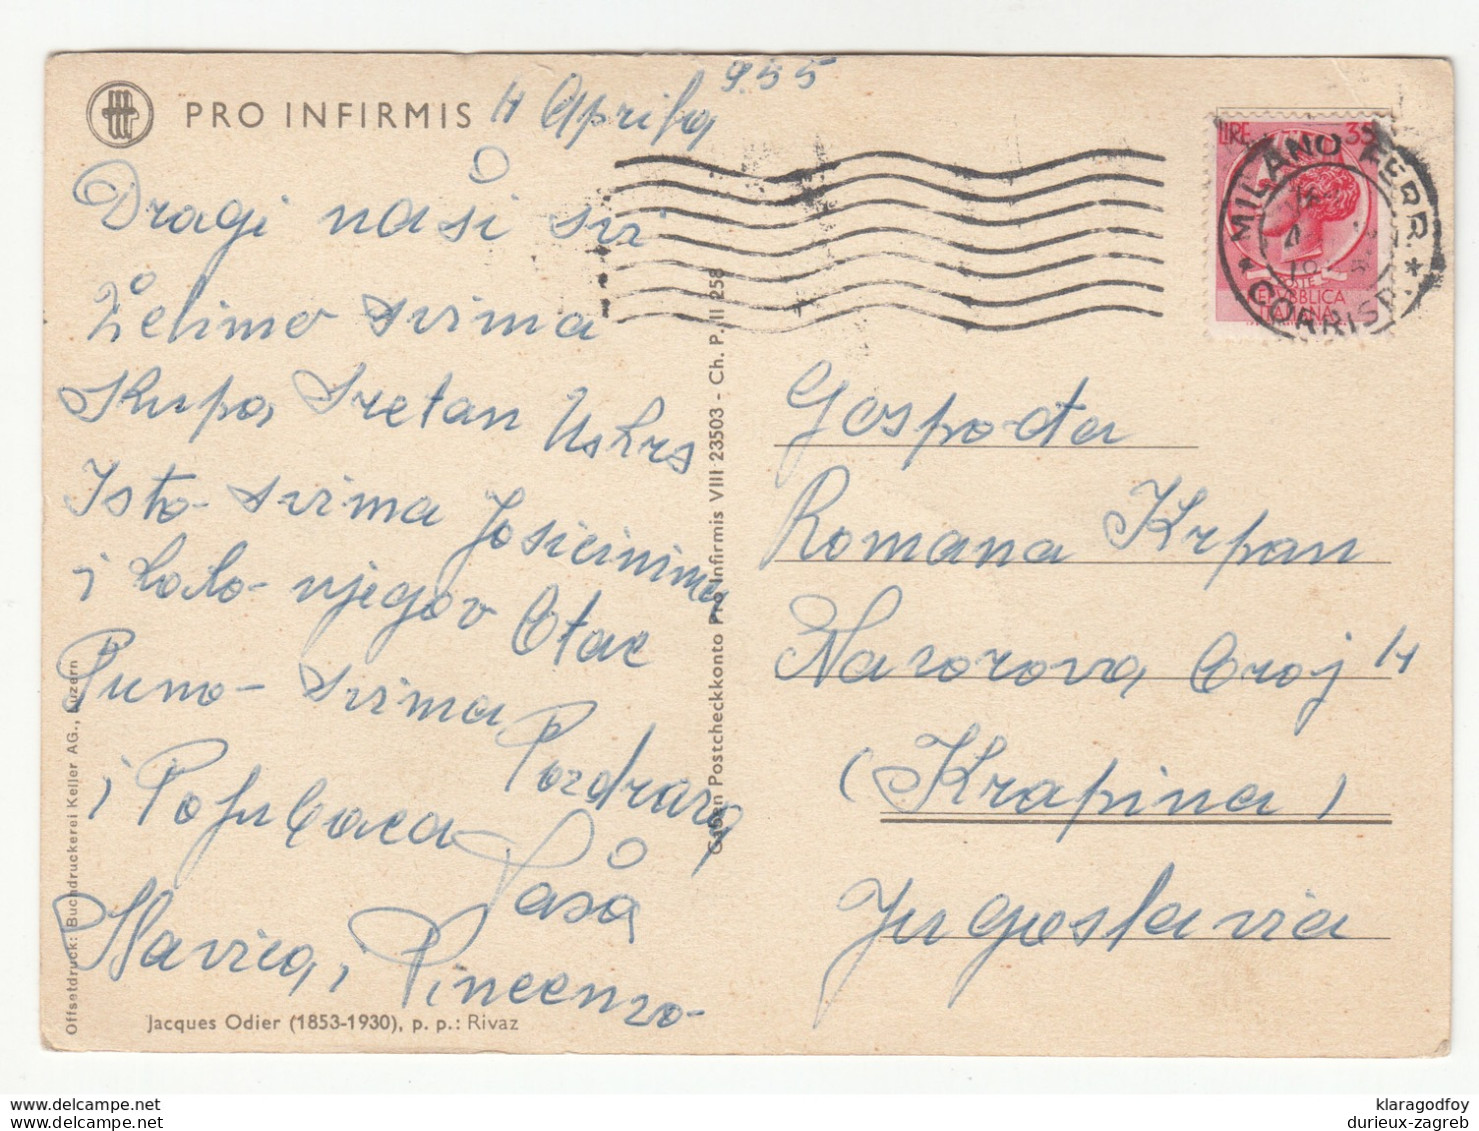 PRO INFIRMIS
4 Aprila 955
Dragi naši svi
Želimo svima
Skupa Sretan Uskrs
Isto- svima Josicinima
i Lolo- njegov Otac
Puno- svima Pozdrava
i Poljubaca Saša
Slavica, i Vincenzo-
Jacques Odier (1853-1930), p. p.: Rivaz
Offsetdruck: Buchdruckerei Keller AG., Luzern
Gaben Postcheckkonto Pro Infirmis VIII 23503 - Ch. P. II 258
LIRE 35
POSTE
REPVBBLICA
ITALIANA
* MILANO FERR. *
CORRISP.
Gospođa
Romana Krpan
Nazorova Broj 4
(Krapina)
Jugoslavia
klaragodfoy
delcampe.net
durieux-zagreb